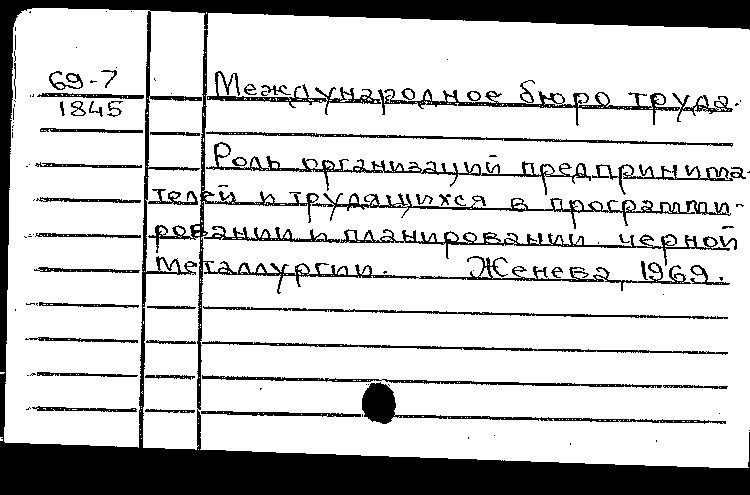 69-7
1845
Международное бюро труда.
Роль организаций предпринима-
телей и трудящихся в программи-
ровании и планировании черной
металлургии. Женева, 1969.